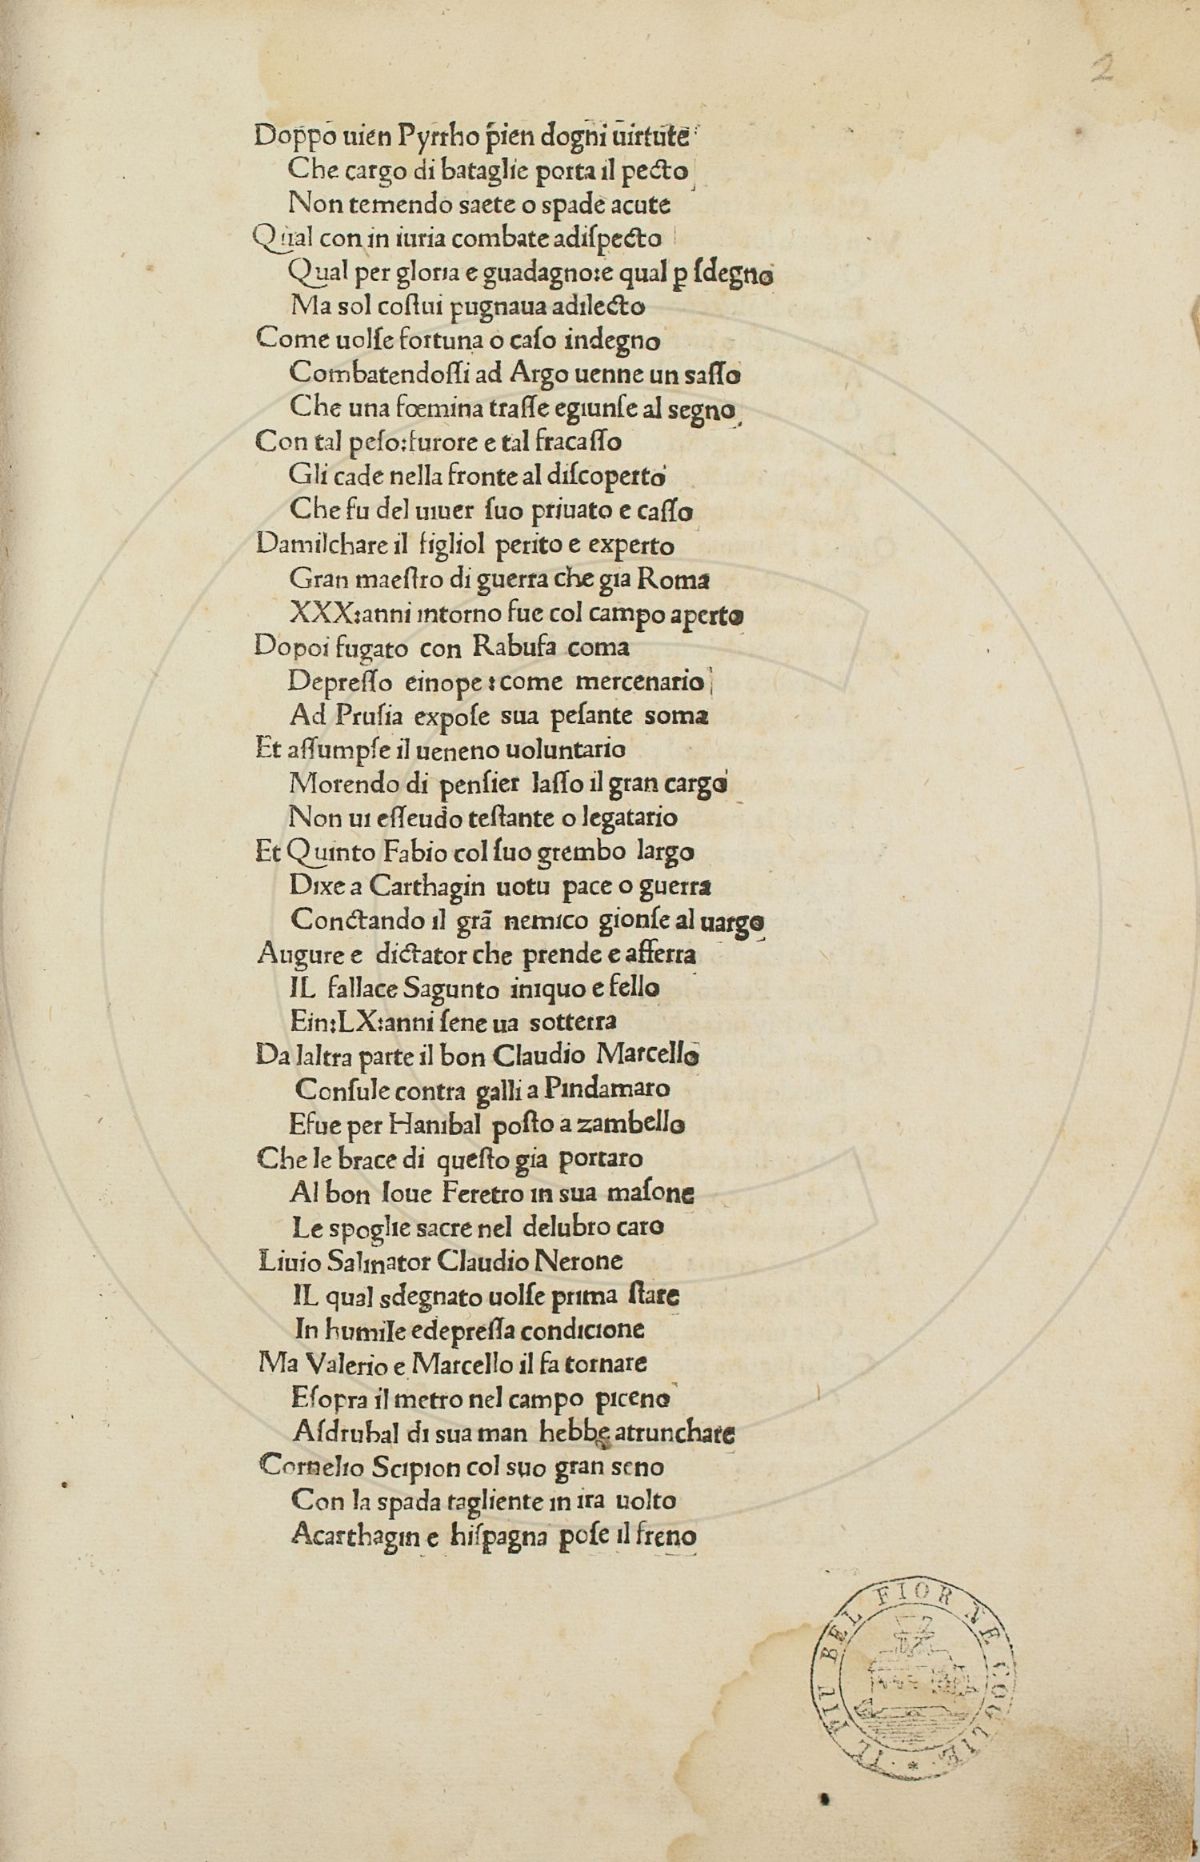 2
Doppo uien Pyrrho p̃ien dogni uirtute
Che cargo di bataglie porta il pecto
Non temendo saete o spade acute
Qual con in iuria combate adiſpecto
Qual per gloria e guadagno:e qual ꝑ ſdegno
Ma sol coſtui pugnaua adilecto
Come uolſe fortuna o caſo indegno
Combatendoſſi ad Argo uenne un saſſo
Che una fœmina traſſe egiunſe al segno
Con tal peſo:furore e tal fracaſſo
Gli cade nella fronte al diſcoperto
Che fu del uiuer ſuo priuato e caſſo
Damilchare il figliol perito e experto
Gran maeſtro di guerra che gia Roma
XXX:anni intorno fue col campo aperto
Dopoi fugato con Rabufa coma
Depreſſo einope:come mercenario
Ad Pruſia expoſe sua peſante soma
Et aſſumpſe il ueneno uoluntario
Morendo di penſier laſſo il gran cargo
Non ui eſſeudo teſtante o legatario
Et Quinto Fabio col ſuo grembo largo
Dixe a Carthagin uotu pace o guerra
Conctando il grã nemico gionſe al uargo
Augure e dictator che prende e afferra
IL fallace Sagunto iniquo e fello
Ein:LX:anni ſene ua sotterra
Da laltra parte il bon Claudio Marcello
Conſule contra galli a Pindamaro
Efue per Hanibal poſto a zambello
Che le brace di queſto gia portaro
Al bon Ioue Feretro in sua maſone
Le spoglie sacre nel delubro caro
Liuio Salinator Claudio Nerone
IL qual sdegnato uolſe prima ſtare
In humile edepreſſa condicione
Ma Valerio e Marcello il fa tornare
Eſopra il metro nel campo piceno
Aſdrubal di sua man hebbe atrunchare
Cornelio Scipion col suo gran seno
Con la spada tagliente in ira uolto
Acarthagin e hiſpagna poſe il freno
IL PIU BEL FIOR NE COGLIE